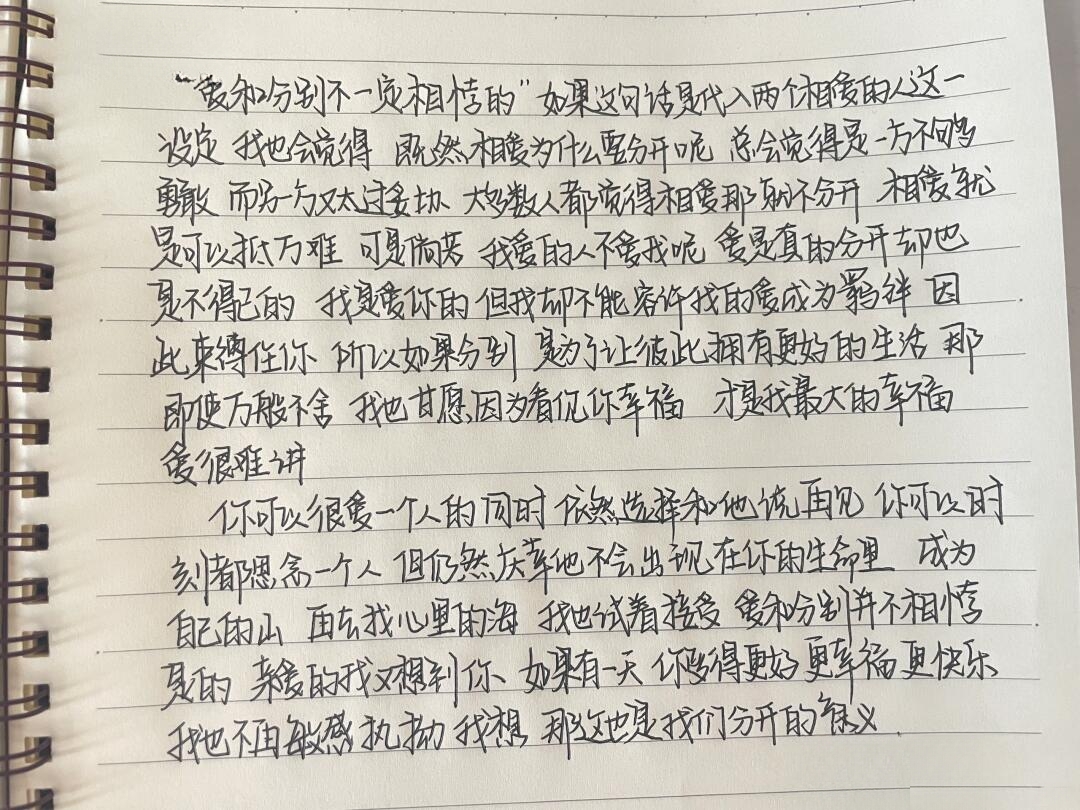 “爱和分别不一定相悖的”如果这句话是代入两个相爱的人这一
设定 我也会觉得 既然相爱为什么要分开呢 总会觉得是一方不够
勇敢 而另一方又太过妥协 大多数人都觉得相爱那就不分开 相爱就
是可以抵万难 可是倘若 我爱的人不爱我呢 爱是真的分开却也
是不得已的 我是爱你的 但我却不能容许我的爱成为羁绊 因
此束缚住你 所以如果分别 是为了让彼此拥有更好的生活 那
即使万般不舍 我也甘愿因为看见你幸福 才是我最大的幸福
爱很难讲
你可以很爱一个人的同时 依然选择和他说再见 你可以时
刻都思念一个人 但仍然庆幸他不会出现在你的生命里 成为
自己的山 再去找心里的海 我也试着接受 爱和分别并不相悖
是的 亲爱的我又想到你 如果有一天 你变得更好更幸福更快乐
我也不再敏感执拗 我想 那这也是我们分开的意义